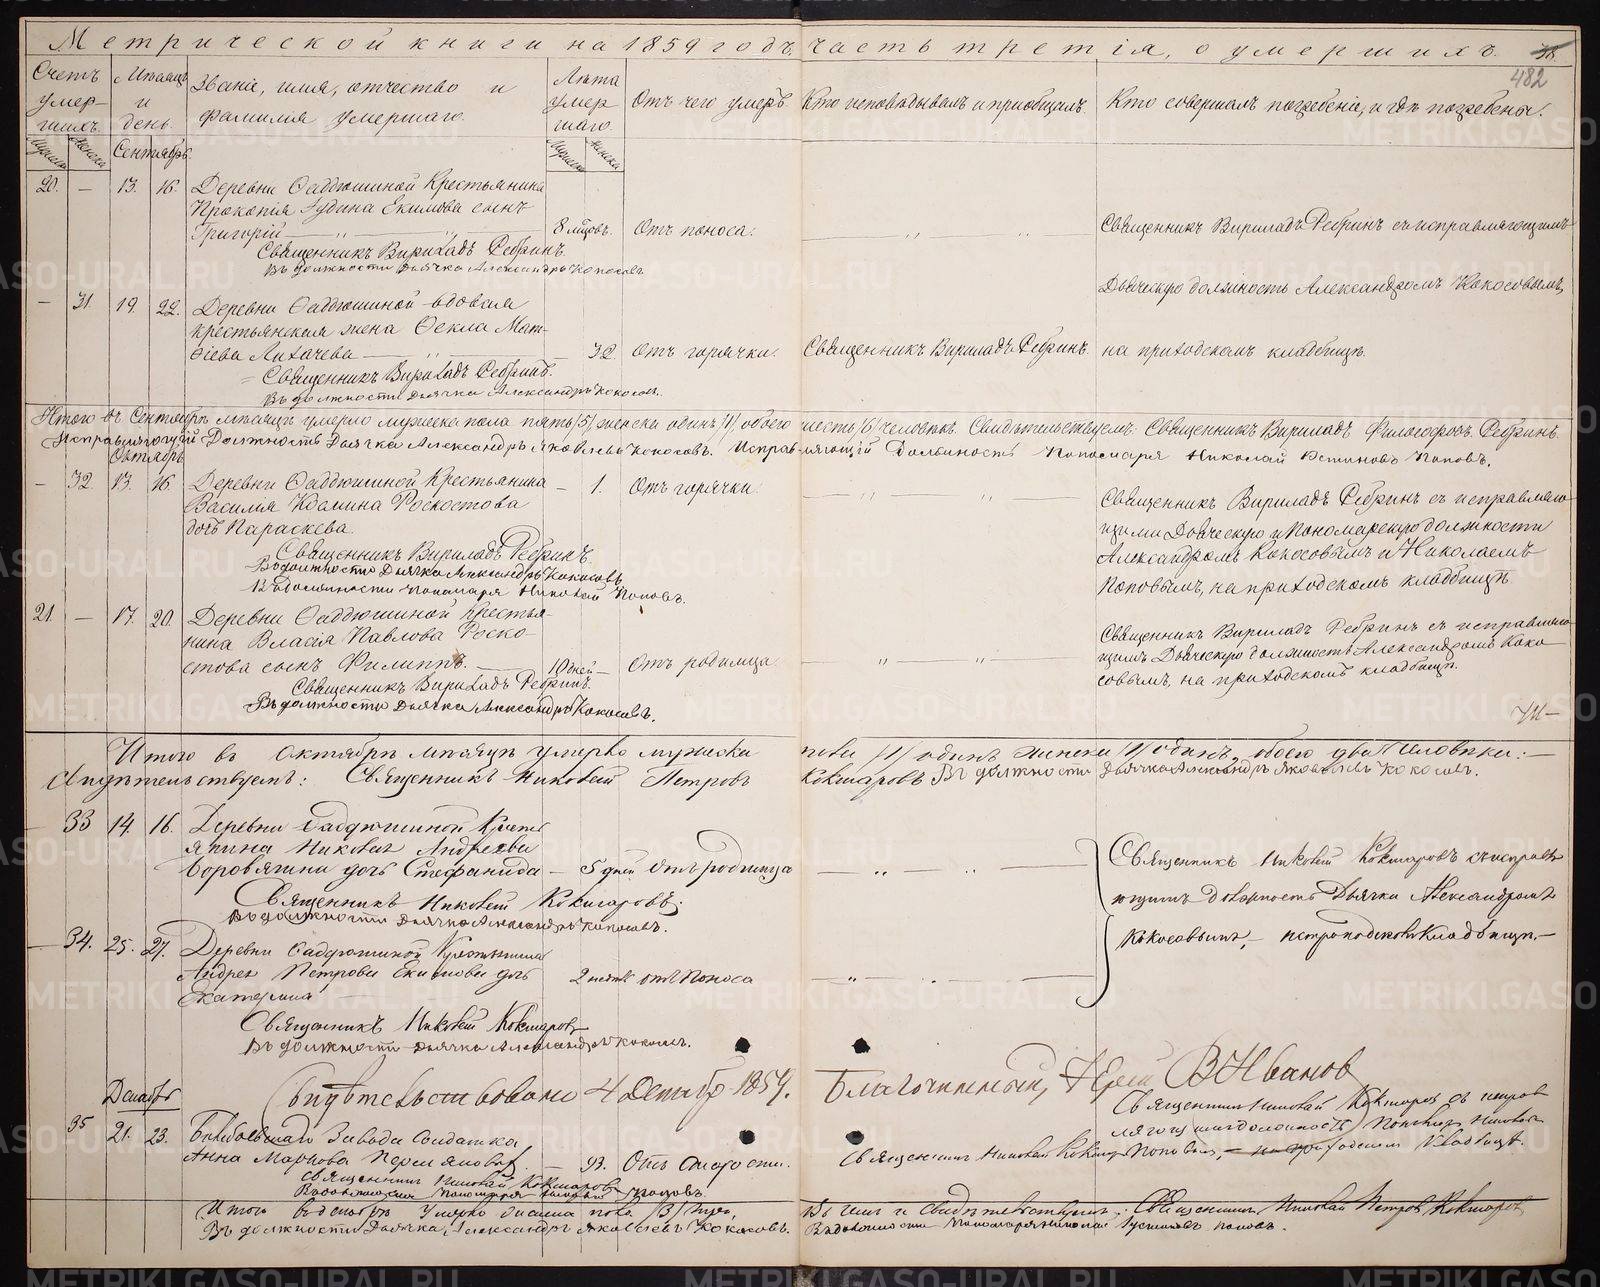 Метрической книги на 1859 годъ, часть третія, о умершихъ.
482
Счетъ умер-шихъ.
Мѣсяцъ и день.
Званіе, имя, отчество и фамилія умершаго.
Лѣта умершаго.
Отъ чего умеръ.
Кто исповѣдывалъ и пріобщалъ.
Кто совершалъ погребеніе, и гдѣ погребены.
Сентябрь.
20. — 13. 16. Деревни Фаддюшиной Крестьянина
Прокопія Екимова сынъ
Григорій 8 мѣсяцовъ. Отъ поноса.
Священникъ Вириладъ Ребринъ съ исправляющимъ
Священникъ Вириладъ Ребринъ.
Въ должности Дьячка Александръ Кокосовъ
Дьяческую должность Александромъ Кокосовымъ,
— 31. 19. 22. Деревни Фаддюшиной вдовая
крестьянская жена Фекла Мат-
фіева Лихачева — 32 Отъ горячки. Священникъ Вириладъ Ребринъ. на приходскомъ кладбищѣ.
Священникъ Вириладъ Ребринъ.
Въ должности Дьячка Александръ Кокосовъ.
Итого въ Сентябрѣ мѣсяцѣ умерло мужеска пола пять /5/ женска одинъ /1/ обоего шесть /6/ человѣкъ. Свидѣтельствуемъ: Священникъ Вириладъ Ребринъ.
Исправляющій Должность Дьячка Александръ Яковлевъ Кокосовъ. Исправляющій Должность Пономаря Николай Устиновъ Поповъ.
Октябрь
— 32. 13. 16. Деревни Фаддюшиной Крестьянина — 1. Отъ горячки.
Василія Роскостова
дочь Параскева.
Священникъ Вириладъ Ребринъ съ исправляю-
щими Дьяческую и Пономарскую должности
Александромъ Кокосовымъ и Николаемъ
Поповымъ, на приходскомъ кладбищѣ.
Священникъ Вириладъ Ребринъ.
Въ должности Дьячка Александръ Кокосовъ
Въ должности пономаря Николай Поповъ.
21. — 17. 20. Деревни Фаддюшиной Крестья-
нина Власія Павлова Роско-
стова сынъ Филиппъ. — 10 дней — Отъ родимца.
Священникъ Вириладъ Ребринъ съ исправляю-
щимъ Дьяческую должность Александромъ Коко-
совымъ, на приходскомъ кладбищѣ.
Священникъ Вириладъ Ребринъ.
Въ должности Дьячка Александръ Кокосовъ.
Итого въ Октябрѣ мѣсяцѣ умерло мужеска пола /1/ одинъ женска /1/ одинъ, обоего два человѣка:—
Свидѣтельствуемъ: Священникъ Николай Петровъ Кокшаровъ Въ должности Дьячка Александръ Яковлевъ Кокосовъ.
33 14. 16. Деревни Фаддюшиной Кресть
янина Андреева
Боровягина дочь Стефанида — 5 дней Отъ родимца
Священникъ Николай Кокшаровъ съ исправля
ющимъ должность Дьячка Александромъ
Кокосовымъ,— на приходскомъ Кладбищѣ.—
Священникъ Николай Кокшаровъ.
Въ должности Дьячка Александръ Кокосовъ.
34. 25. 27. Деревни Фаддюшиной Крестьянина
Андрея Петрова Екимова дочь
Екатерина — отъ Поноса
Священникъ Николай Кокшаровъ
Въ должности Дьячка Александръ Кокосовъ.
Свидѣтельствовано 4 Декабр. 1859. Благочинный, Іерей В Ивановъ
Декабрь
35 21. 23. Завода Солдатка
Анна Маркова — 93. Отъ Старости.
Священникъ Николай Кокшаровъ
Священникъ Николай Кокшаровъ съ исправ
ляющимъ должность Пономаря Николаемъ
Поповымъ, — на приходскомъ Кладбищѣ.
Священникъ Николай Кокшаровъ
Въ должности Пономаря Николай Поповъ.
Итого въ декабрѣ Умерло женска пола /3/ три,
Свидѣтельствуемъ: Священникъ Николай Петровъ Кокшаровъ
Въ должности Дьячка Александръ Яковлевъ Кокосовъ. Въ должности Пономаря Николай Устиновъ Поповъ.
METRIKI.GASO-URAL.RU